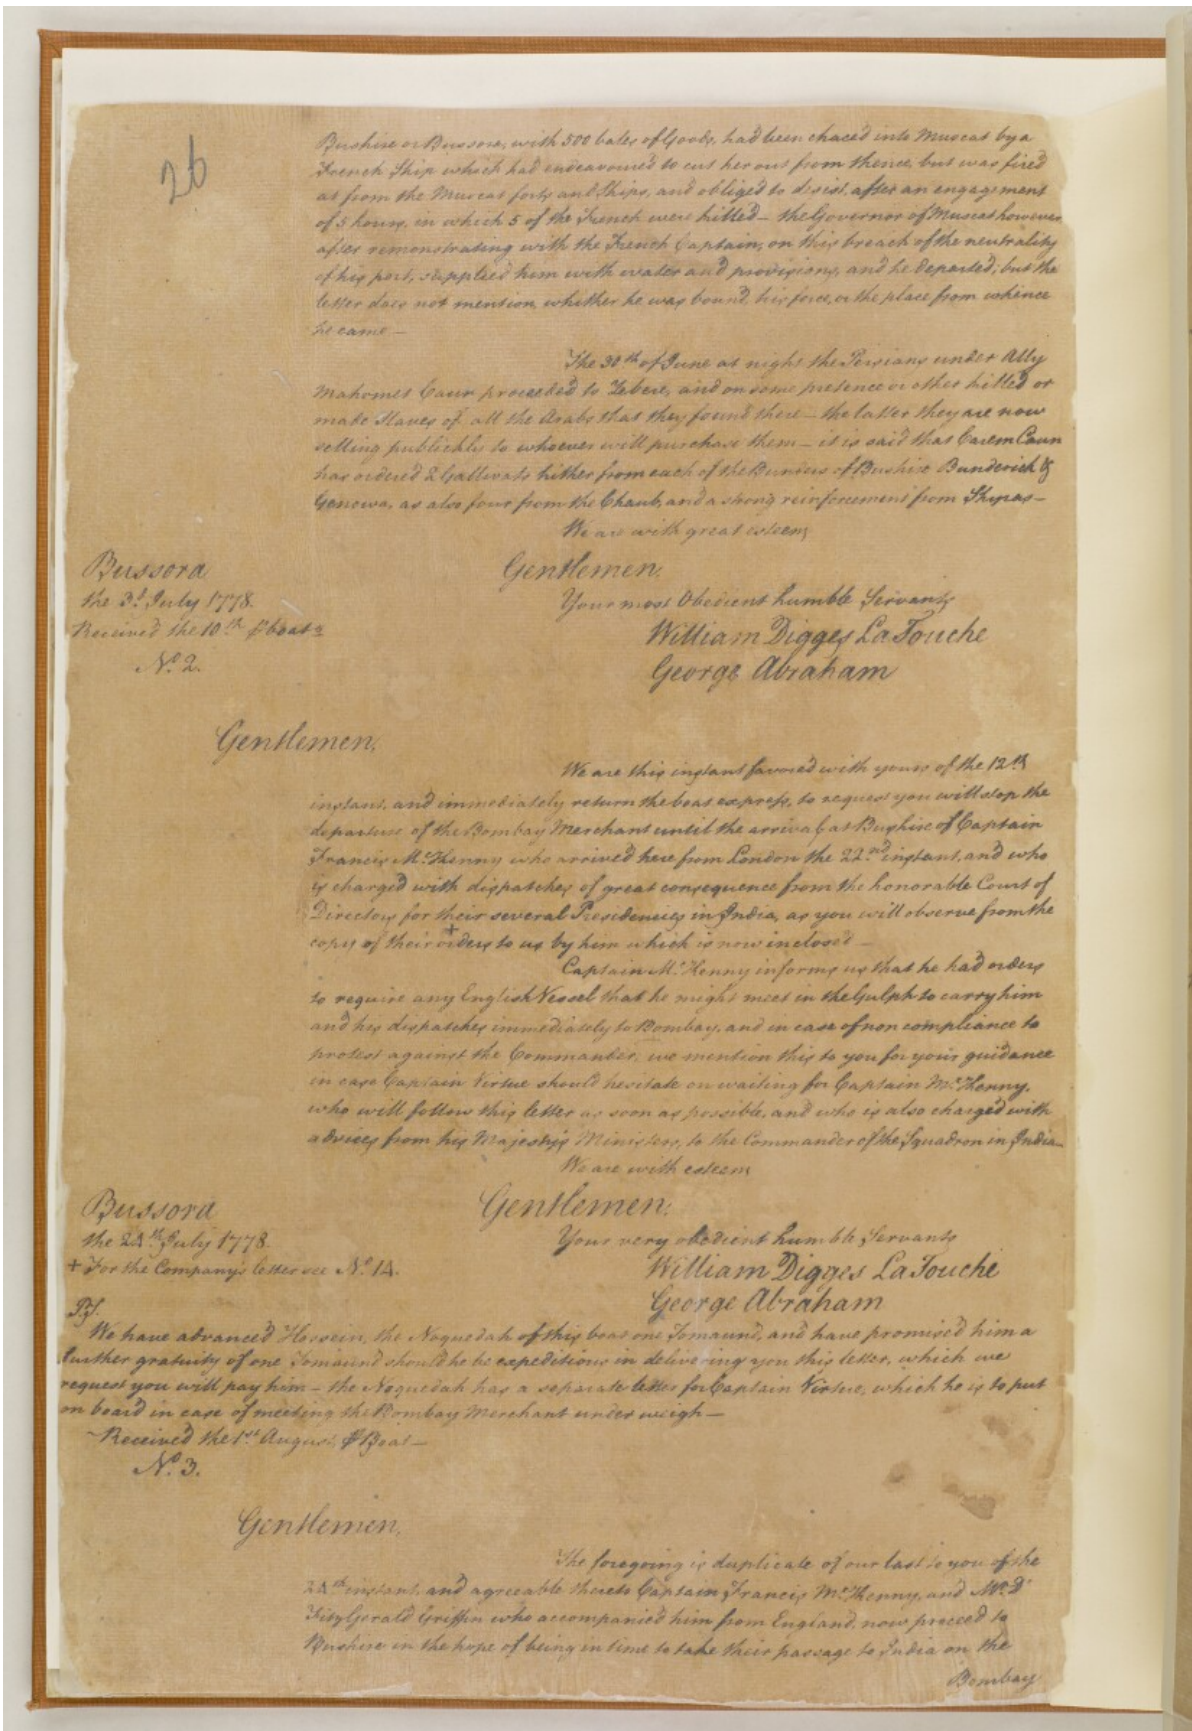 26
Bushire or Bussora, with 500 bales of Goods, had been chaced into Muscat by a
French Ship which had endeavoured to cut her out from thence, but was fired
at from the Muscat forts and Ships, and obliged to desist, after an engagement
of 5 hours, in which 5 of the French were killed — the Governor of Muscat however
after remonstrating with the French Captain, on this breach of the neutrality
of his port, supplied him with water and provisions, and he departed; but the
letter does not mention whither he was bound, his force, or the place from whence
he came —
The 30th of June at night the Persians under Ally
Mahomet Caun proceeded to Zebere, and on some pretence or other killed or
made Slaves of all the Arabs that they found there — the latter they are now
selling publickly to whoever will purchase them — it is said that Carem Caun
has ordered 2 Gallivats hither from each of the Bunders of Bushire Bunderick &
Genowa, as also four from the Chaub, and a strong reinforcement from Shyras —
We are with great esteem,
Gentlemen,
Bussora
the 3d July 1778.
Received the 10th ⅌ boat
No. 2.
Your most Obedient humble Servants
William Digges LaTouche
George Abraham
Gentlemen,
We are this instant favored with yours of the 12th
instant, and immediately return the boat express, to request you will stop the
departure of the Bombay Merchant until the arrival at Bushire of Captain
Francis McHenny who arrived here from London the 22nd instant, and who
is charged with dispatches of great consequence from the honorable Court of
Directors for their several Presidencies in India, as you will observe from the
copy of their + orders to us by him which is now inclosed —
Captain McHenny informs us that he had orders
to require any English Vessel that he might meet in the Gulph to carry him
and his dispatches immediately to Bombay, and in case of non compliance to
protest against the Commander. we mention this to you for your guidance
in case Captain Virtue should hesitate on waiting for Captain McHenny,
who will follow this letter as soon as possible, and who is also charged with
advices from his Majestys Ministers, to the Commander of the Squadron in India —
We are with esteem
Gentlemen,
Bussora
the 24th July 1778.
+ For the Company's letter see No. 14.
Your very obedient humble Servants
William Digges LaTouche
George Abraham
P.S.
We have advanced Hossein, the Noquedah of this boat one Tomaund, and have promised him a
further gratuity of one Tomaund should he be expeditious in delivering you this letter, which we
request you will pay him — the Noquedah has a separate letter for Captain Virtue, which he is to put
on board in case of meeting the Bombay Merchant under weigh —
Received the 1st August, ⅌ Boat —
No. 3.
Gentlemen,
The foregoing is duplicate of our last to you of the
24th instant, and agreeable thereto Captain Francis McHenny, and Mr.
FitzGerald Griffin who accompanied him from England, now proceed to
Bushire in the hope of being in time to take their passage to India on the
Bombay